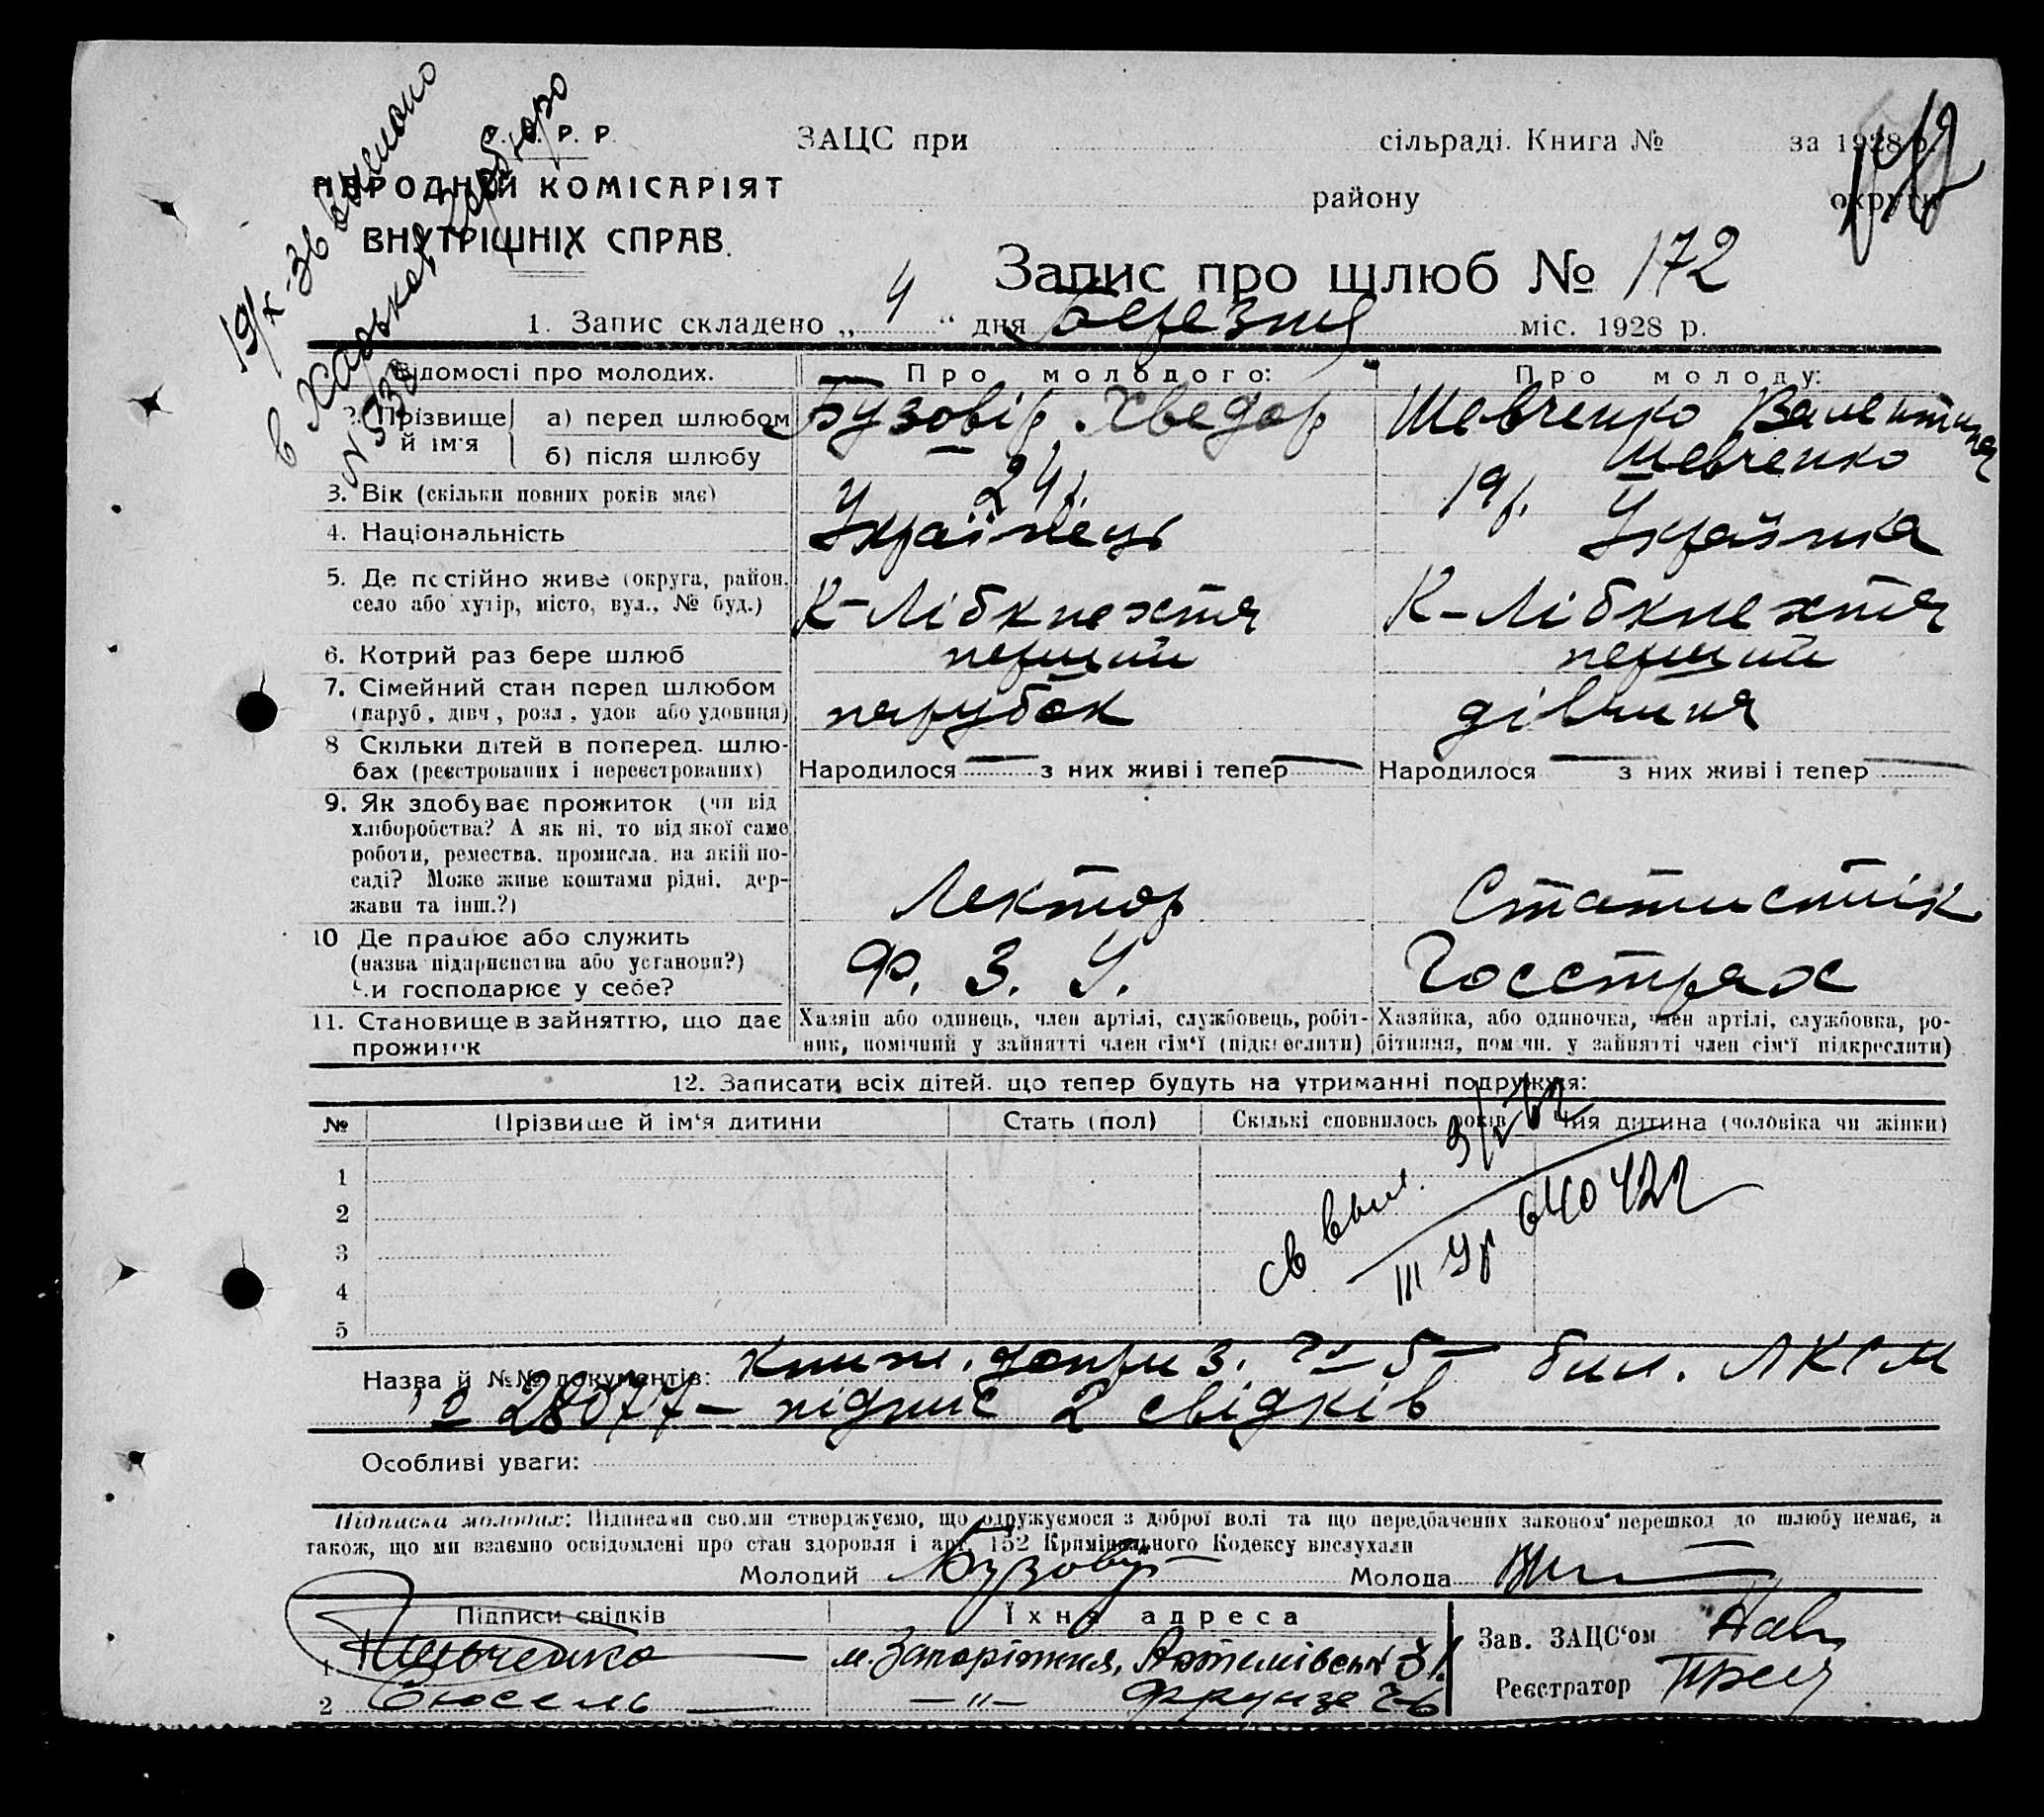 19/X-36 выслано
в Харьков Гербюро
N 5738
С. Р. Р.
НАРОДНИЙ КОМІСАРІЯТ
ВНУТРІШНІХ СПРАВ.
ЗАЦС при сільраді. Книга № за 1928 р.
району округи
Запис про шлюб № 172
1. Запис складено „ 4 “ дня Березня міс. 1928 р.
Відомості про молодих. Про молодого: Про молоду:
2. Прізвище й ім'я а) перед шлюбом Бузовір Хведор Шевченко Валентина
б) після шлюбу Шевченко
3. Вік (скільки повних років має) 24 р. 19 р.
4. Національність Українець Українка
5. Де постійно живе (округа, район, село або хутір, місто, вул., № буд.) К-Лібкнехта К-Лібкнехта
6. Котрий раз бере шлюб перший перший
7. Сімейний стан перед шлюбом (паруб, дівч, розл, удов або удовиця) парубок дівчина
8 Скільки дітей в поперед. шлюбах (реєстрованих і нереєстрованих) Народилося — з них живі і тепер — Народилося — з них живі і тепер —
9. Як здобуває прожиток (чи від хліборобства? А як ні, то від якої саме роботи, ремества, промисла, на якій посаді? Може живе коштами рідні, держави та інш.?) Лектор Статистік
10 Де працює або служить (назва підприємства або установи?) Чи господарює у себе? Ф. З. У. Госстрах
11. Становище в зайняттю, що дає прожиток Хазяїн або одинець, член артілі, службовець, робітник, помічний у зайнятті член сім'ї (підкреслити) Хазяйка, або одиночка, член артілі, службовка, робітниця, помічн. у зайнятті член сім'ї підкреслити)
12. Записати всіх дітей, що тепер будуть на утриманні подружжя:
№ Прізвище й ім'я дитини Стать (пол) Скількі сповнилось років Чия дитина (чоловіка чи жінки)
1
2
3
4
5
св выл.
III Ур 640422
Назва й №№ документів: книж. допри з. № 5 — бил. ЛКСМ
№ 28077 — підпис 2 свідків
Особливі уваги:
Підписка молодих: Підписами своїми стверджуємо, що одружуємося з доброї волі та що передбачених законом перешкод до шлюбу немає, а
також, що ми взаємно освідомлені про стан здоровля і арт. 152 Кримінального Кодексу вислухали
Молодий Бузовір Молода
Підписи свідків Їхня адреса
1 м. Запоріжжя, Артемівськ 31 Зав. ЗАЦС'ом
2 —"— Фрунзе Реєстратор